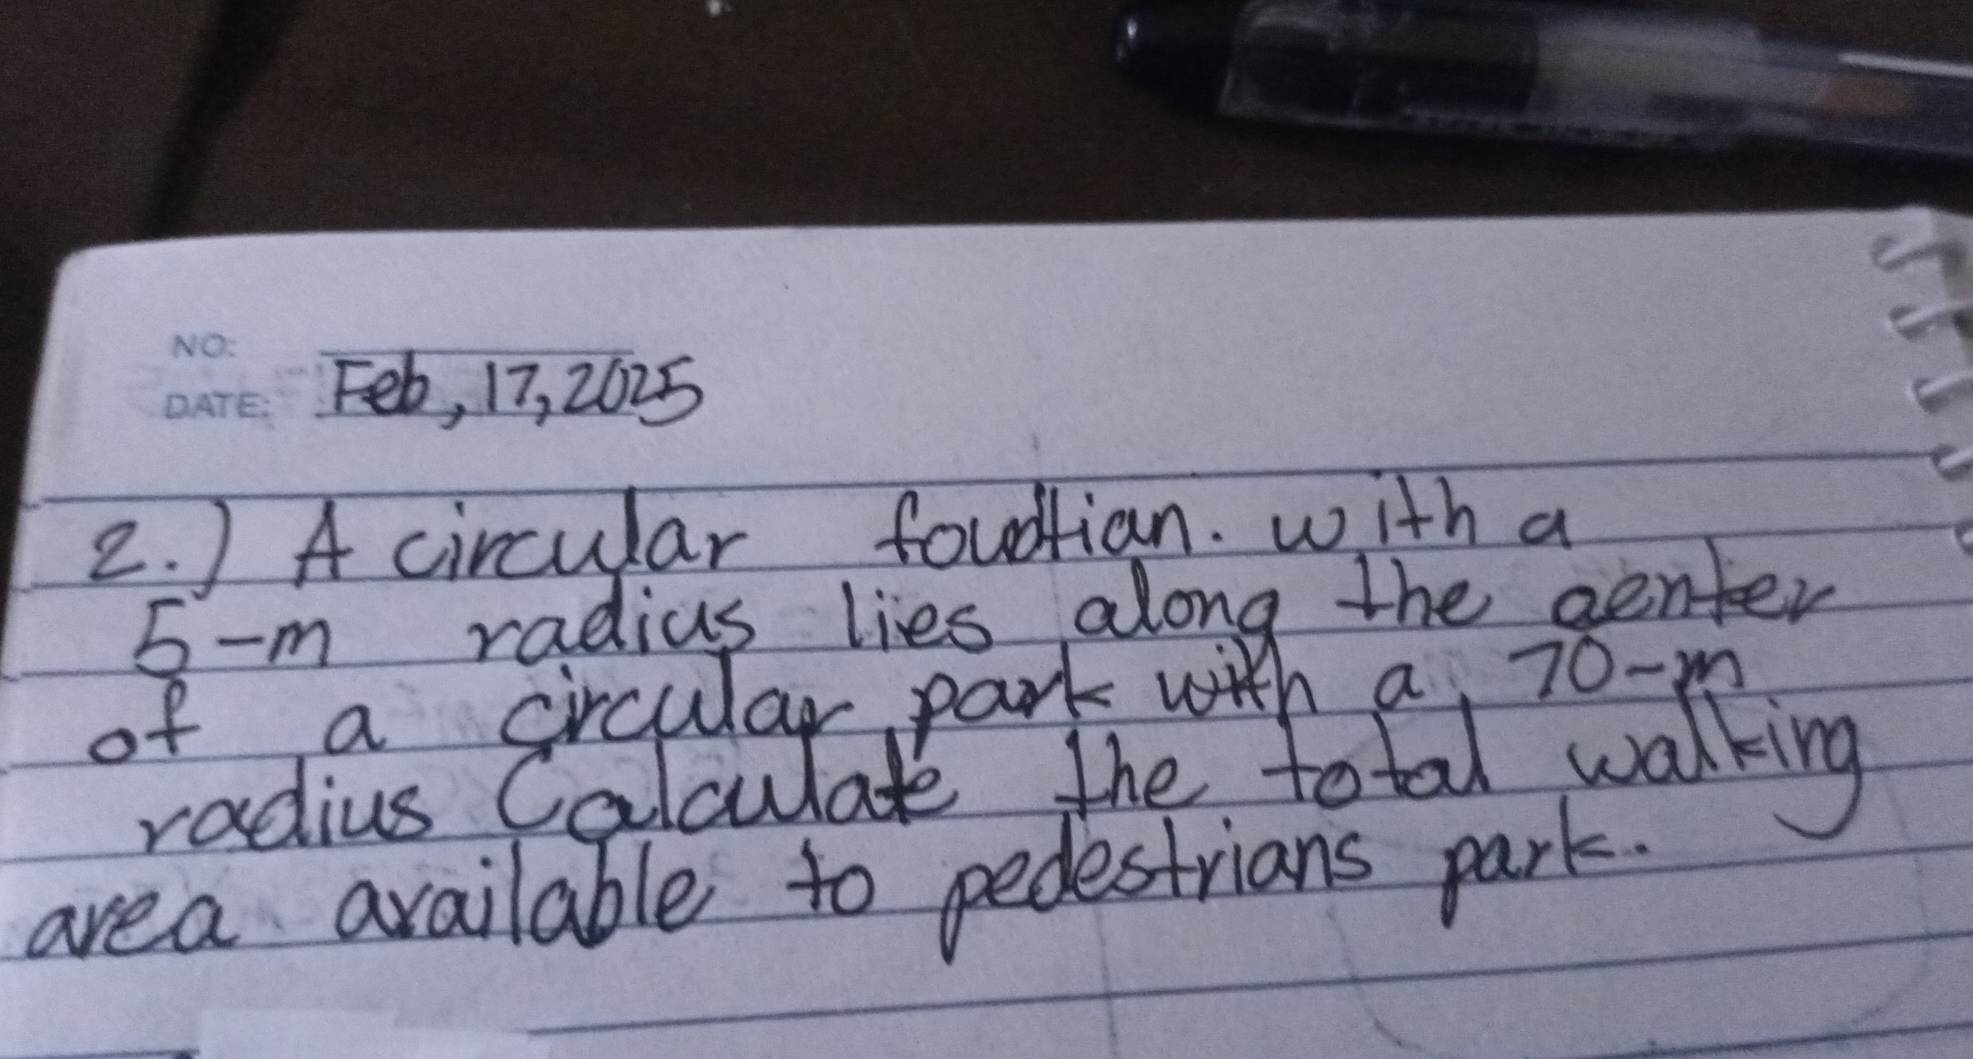 NO:
DATE: Feb, 17, 2025
2.) A circular foudtian. with a
5-m radius lies along the aenter
of a circular park with a 70-m
radius Calculate the total walking
area available to pedestrians park.